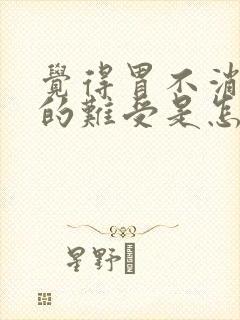 覺得胃不消
的難受是怎
星野